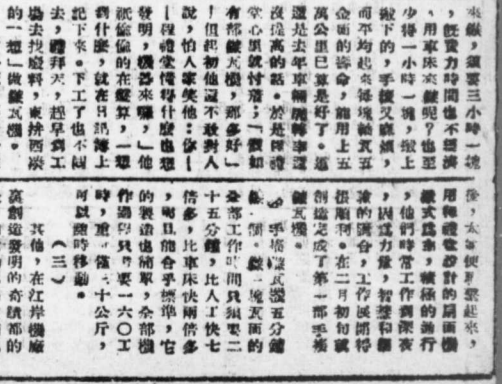 來鏇,須要三小時一塊
,既費力時間也不經濟
,用車床來鏇呢?也至
少得一小時一塊,鏇上
鏇下的,手續又麻煩,
而平均起來每塊軸瓦五
金面的壽命,能用上五
萬公里已算是好了。這
還是去年車輛周轉率還
沒提高的話。於是田禮
堂心裏就忖落;「假如
有部鏇瓦機,那多好」
—但起初他還不敢對人
說,怕人家笑他:你—
—禮堂懂得什麼也想
發明,機器來嚇,」他
祇偷偷的在盤算,一想
到什麼,就在日記簿上
記下來。下工了也不回
去,禮拜天,趕早到工
場去找廢料,東拚西湊
的一想」做鏇瓦機。
後,起來,
用田禮堂設計的扇面機
式爲主,積極的進行
,他們時常工作到深夜
,因爲力量,智慧和經
驗的匯合,工作展開得
很順利。在二月初旬就
創造完成了第一部手搖
鏇瓦機。
手搖鏇瓦機五分鐘
鏇一個。鏇一塊瓦面的
全部工作時間只須要二
十五分鐘,比人工快七
倍多,比車床快兩倍多
,而且能合乎標準,它
的製造也簡單,全部機
作過程只需要一六〇工
時,重量僅三十公斤,
可以隨時移動。
(三)
其他,在江岸機廠
創造發明的奇蹟都的